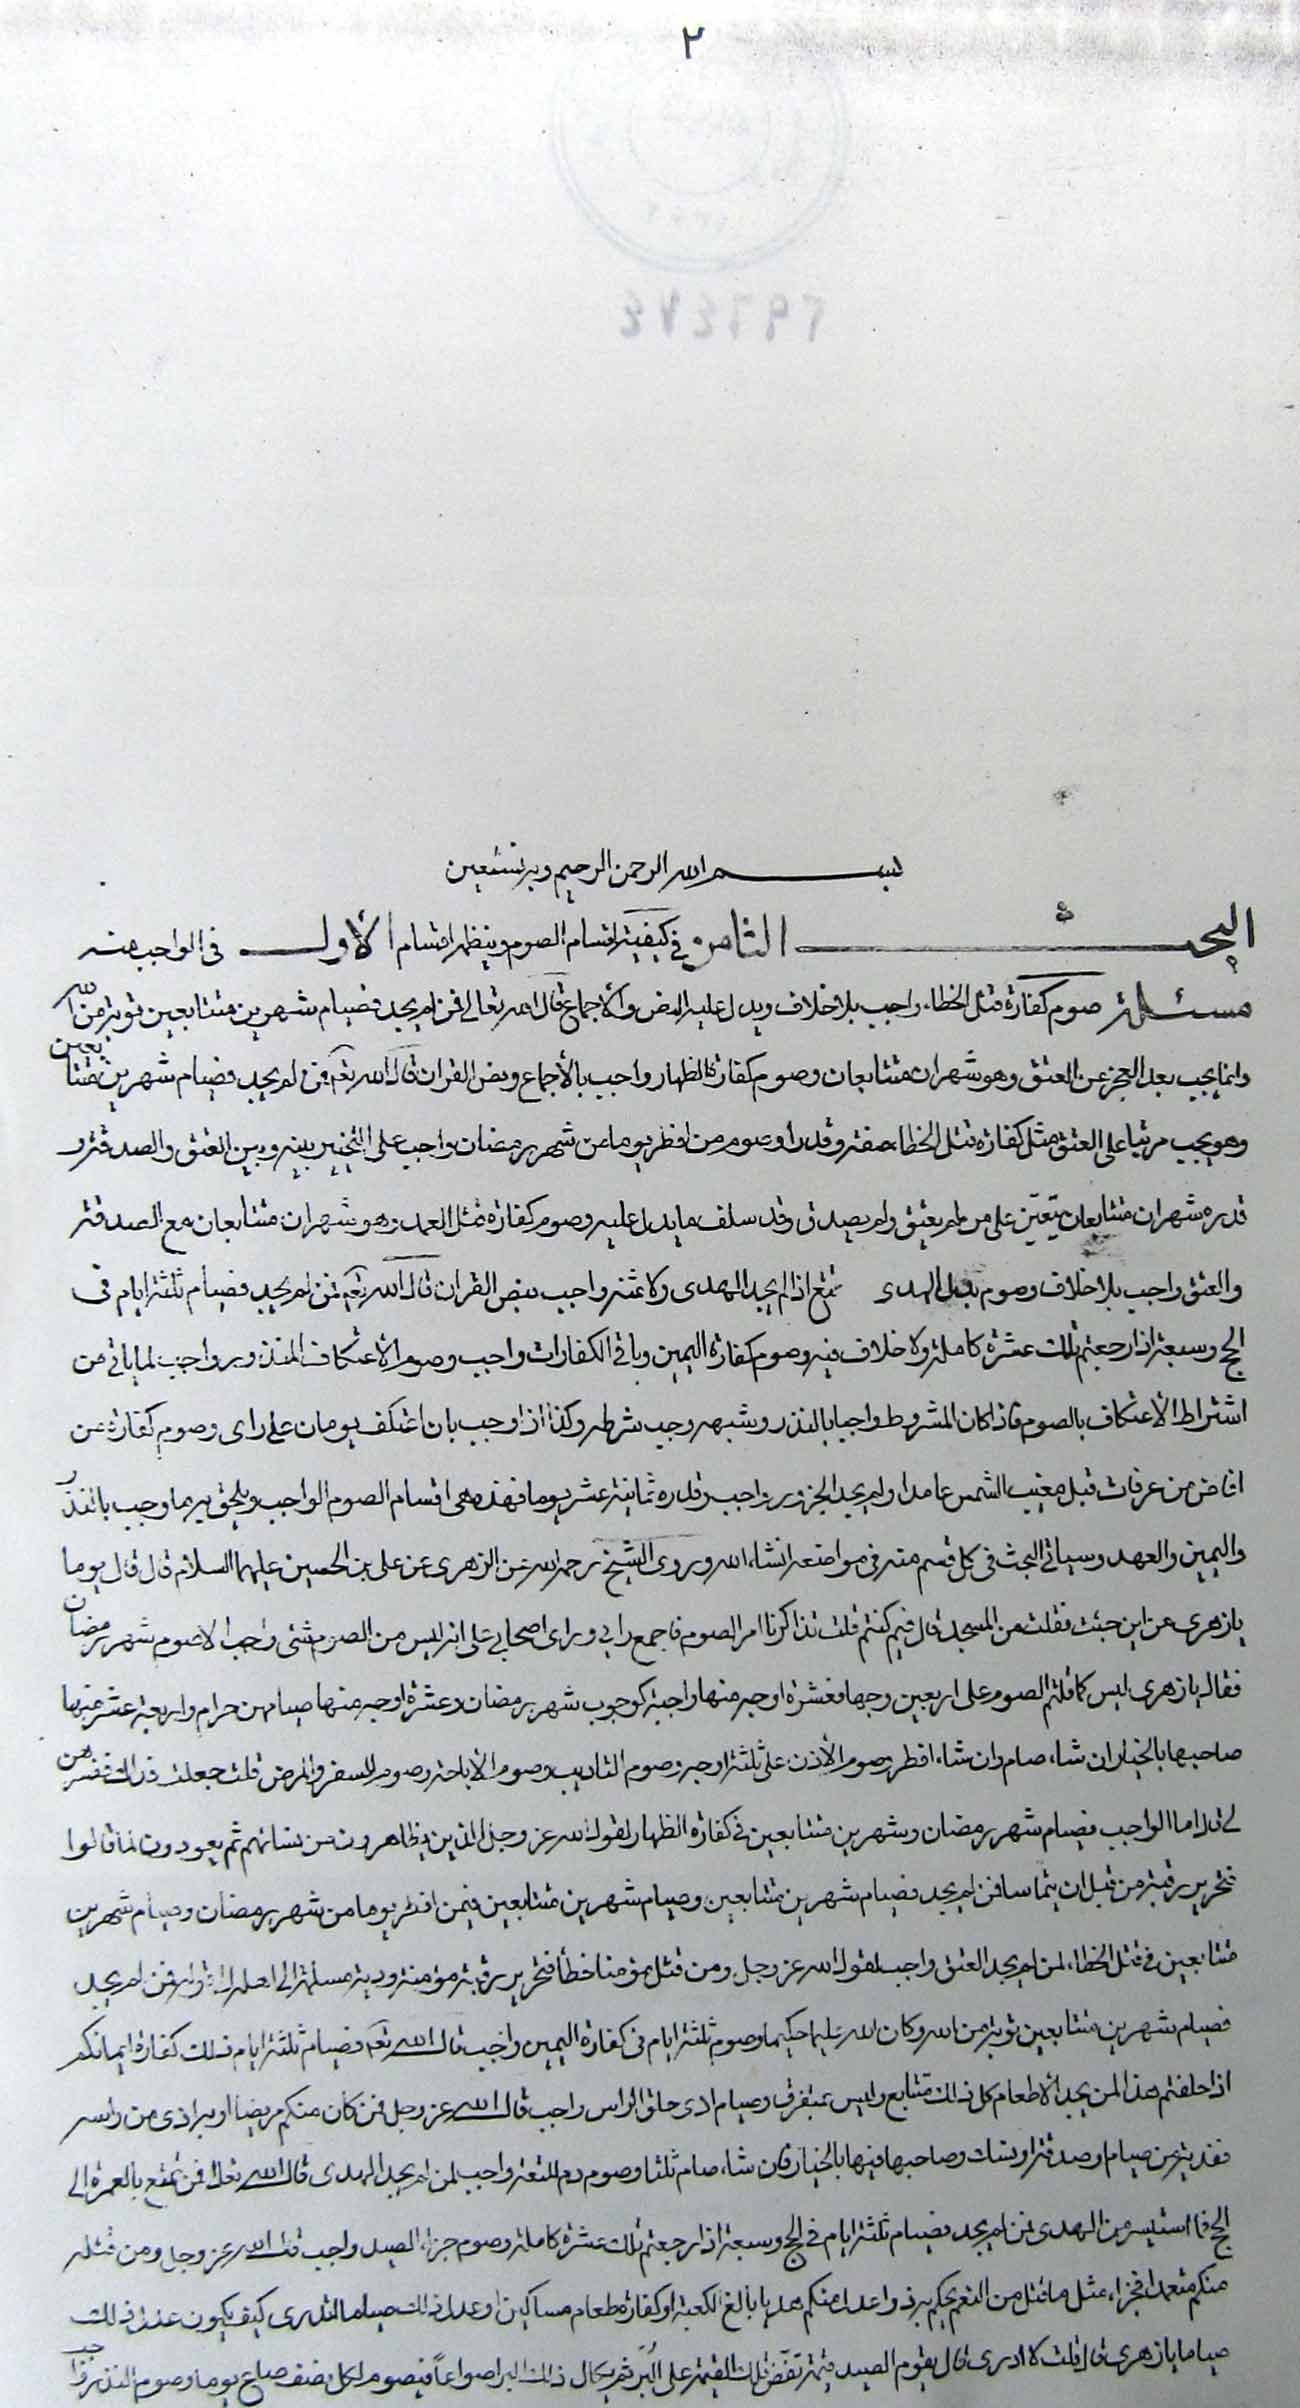 ٢
بسم الله الرحمن الرحيم وبه نستعين
البحث الثامن في كيفية اقسام الصوم وينظمه اقسام الأول في الواجب منه
مسئلة صوم كفارة قتل الخطاء واجب بلا خلاف ويدل عليه النص والأجماع قال الله تعالى فمن لم يجد فصيام شهرين متتابعين توبة من الله
وانما يجب بعد العجز عن العتق وهو شهران متتابعان وصوم كفارة الظهار واجب بالأجماع ونص القران قال الله تعم فمن لم يجد فصيام شهرين متتابعين
وهو يجب مرتبا على العتق مثل كفارة قتل الخطاء صفة وقدرا وصوم من افطر يوما من شهر رمضان واجب على التخيير بينه وبين العتق والصدقة و
قدره شهران متتابعان يتعين على من لم يعتق ولم يصدق وقد سلف ما يدل عليه وصوم كفارة قتل العمد وهو شهران متتابعان مع الصدقة
والعتق واجب بلا خلاف وصوم بدل الهدى تمتع اذا لم يجد الهدى ولا ثمنه واجب بنص القران قال الله تعم فمن لم يجد فصيام ثلثة ايام فى
الحج وسبعة اذا رجعتم تلك عشرة كاملة ولا خلاف فيه وصوم كفارة اليمين وباقى الكفارات واجب وصوم الأعتكاف المنذور واجب لما ياتى من
اشتراط الأعتكاف بالصوم فاذا كان المشروط واجبا بالنذر وشبهه وجب شرطه وكذا اذا وجب بان اعتكف يومان على راى وصوم كفارة من
افاض من عرفات قبل مغيب الشمس عامدا ولم يجد الجزور واجب وقدره ثمانية عشر يوما فهذه هى اقسام الصوم الواجب ويلحق به ما وجب بالنذر
واليمين والعهد وسياتى البحث فى كل قسم منه فى مواضعه انشاء الله وروى الشيخ رحمه الله عن الزهرى عن على بن الحسين عليهما السلام قال قال يوما
يا زهرى من اين جئت فقلت من المسجد قال فيم كنتم قلت تذاكرنا امر الصوم فاجمع رايى وراى اصحابى على انه ليس من الصوم شئ واجب الا صوم شهر رمضان
فقال يا زهرى ليس كما قلتم الصوم على اربعين وجها فعشرة اوجه منها واجبة كوجوب شهر رمضان وعشرة اوجه منها صيامهن حرام واربعة عشر منها
صاحبها بالخيار ان شاء صام وان شاء افطر وصوم الأذن على ثلثة اوجه وصوم التاديب وصوم الأباحة وصوم السفر والمرض قلت جعلت فداك فسرهن
لى قال اما الواجب فصيام شهر رمضان وشهرين متتابعين فى كفارة الظهار لقول الله عز وجل الذين يظاهرون من نسائهم ثم يعودون لما قالوا
فتحرير رقبة من قبل ان يتماسا فمن لم يجد فصيام شهرين متتابعين وصيام شهرين متتابعين فيمن افطر يوما من شهر رمضان وصيام شهرين
متتابعين فى قتل الخطاء لمن لم يجد العتق واجب لقول الله عز وجل ومن قتل مؤمنا خطأ فتحرير رقبة مؤمنة ودية مسلمة الى اهله الى قوله فمن لم يجد
فصيام شهرين متتابعين توبة من الله وكان الله عليما حكيما وصوم ثلثة ايام فى كفارة اليمين واجب قال الله تعم فصيام ثلثة ايام ذلك كفارة ايمانكم
اذا حلفتم هذا لمن يجد الأطعام كل ذلك متتابع وليس بمتفرق وصيام اذى حلق الراس واجب قال الله عز وجل فمن كان منكم مريضا او به اذى من راسه
ففدية من صيام او صدقة او نسك وصاحبها فيها بالخيار فان شاء صام ثلثا وصوم دم المتعة واجب لمن لم يجد الهدى قال الله تعالى فمن تمتع بالعمرة الى
الحج فما استيسر من الهدى فمن لم يجد فصيام ثلثة ايام فى الحج وسبعة اذا رجعتم تلك عشرة كاملة وصوم جزاء الصيد واجب قال الله عز وجل ومن قتله
منكم متعمدا فجزاء مثل ما قتل من النعم يحكم به ذوا عدل منكم هديا بالغ الكعبة او كفارة طعام مساكين او عدل ذلك صياما اتدرى كيف يكون عدل ذلك
صياما يا زهرى قال قلت لا ادرى قال يقوم الصيد قيمة ثم تفض تلك القيمة على البر ثم يكال ذلك البر اصواعا فيصوم لكل نصف صاع يوما وصوم النذر واجب